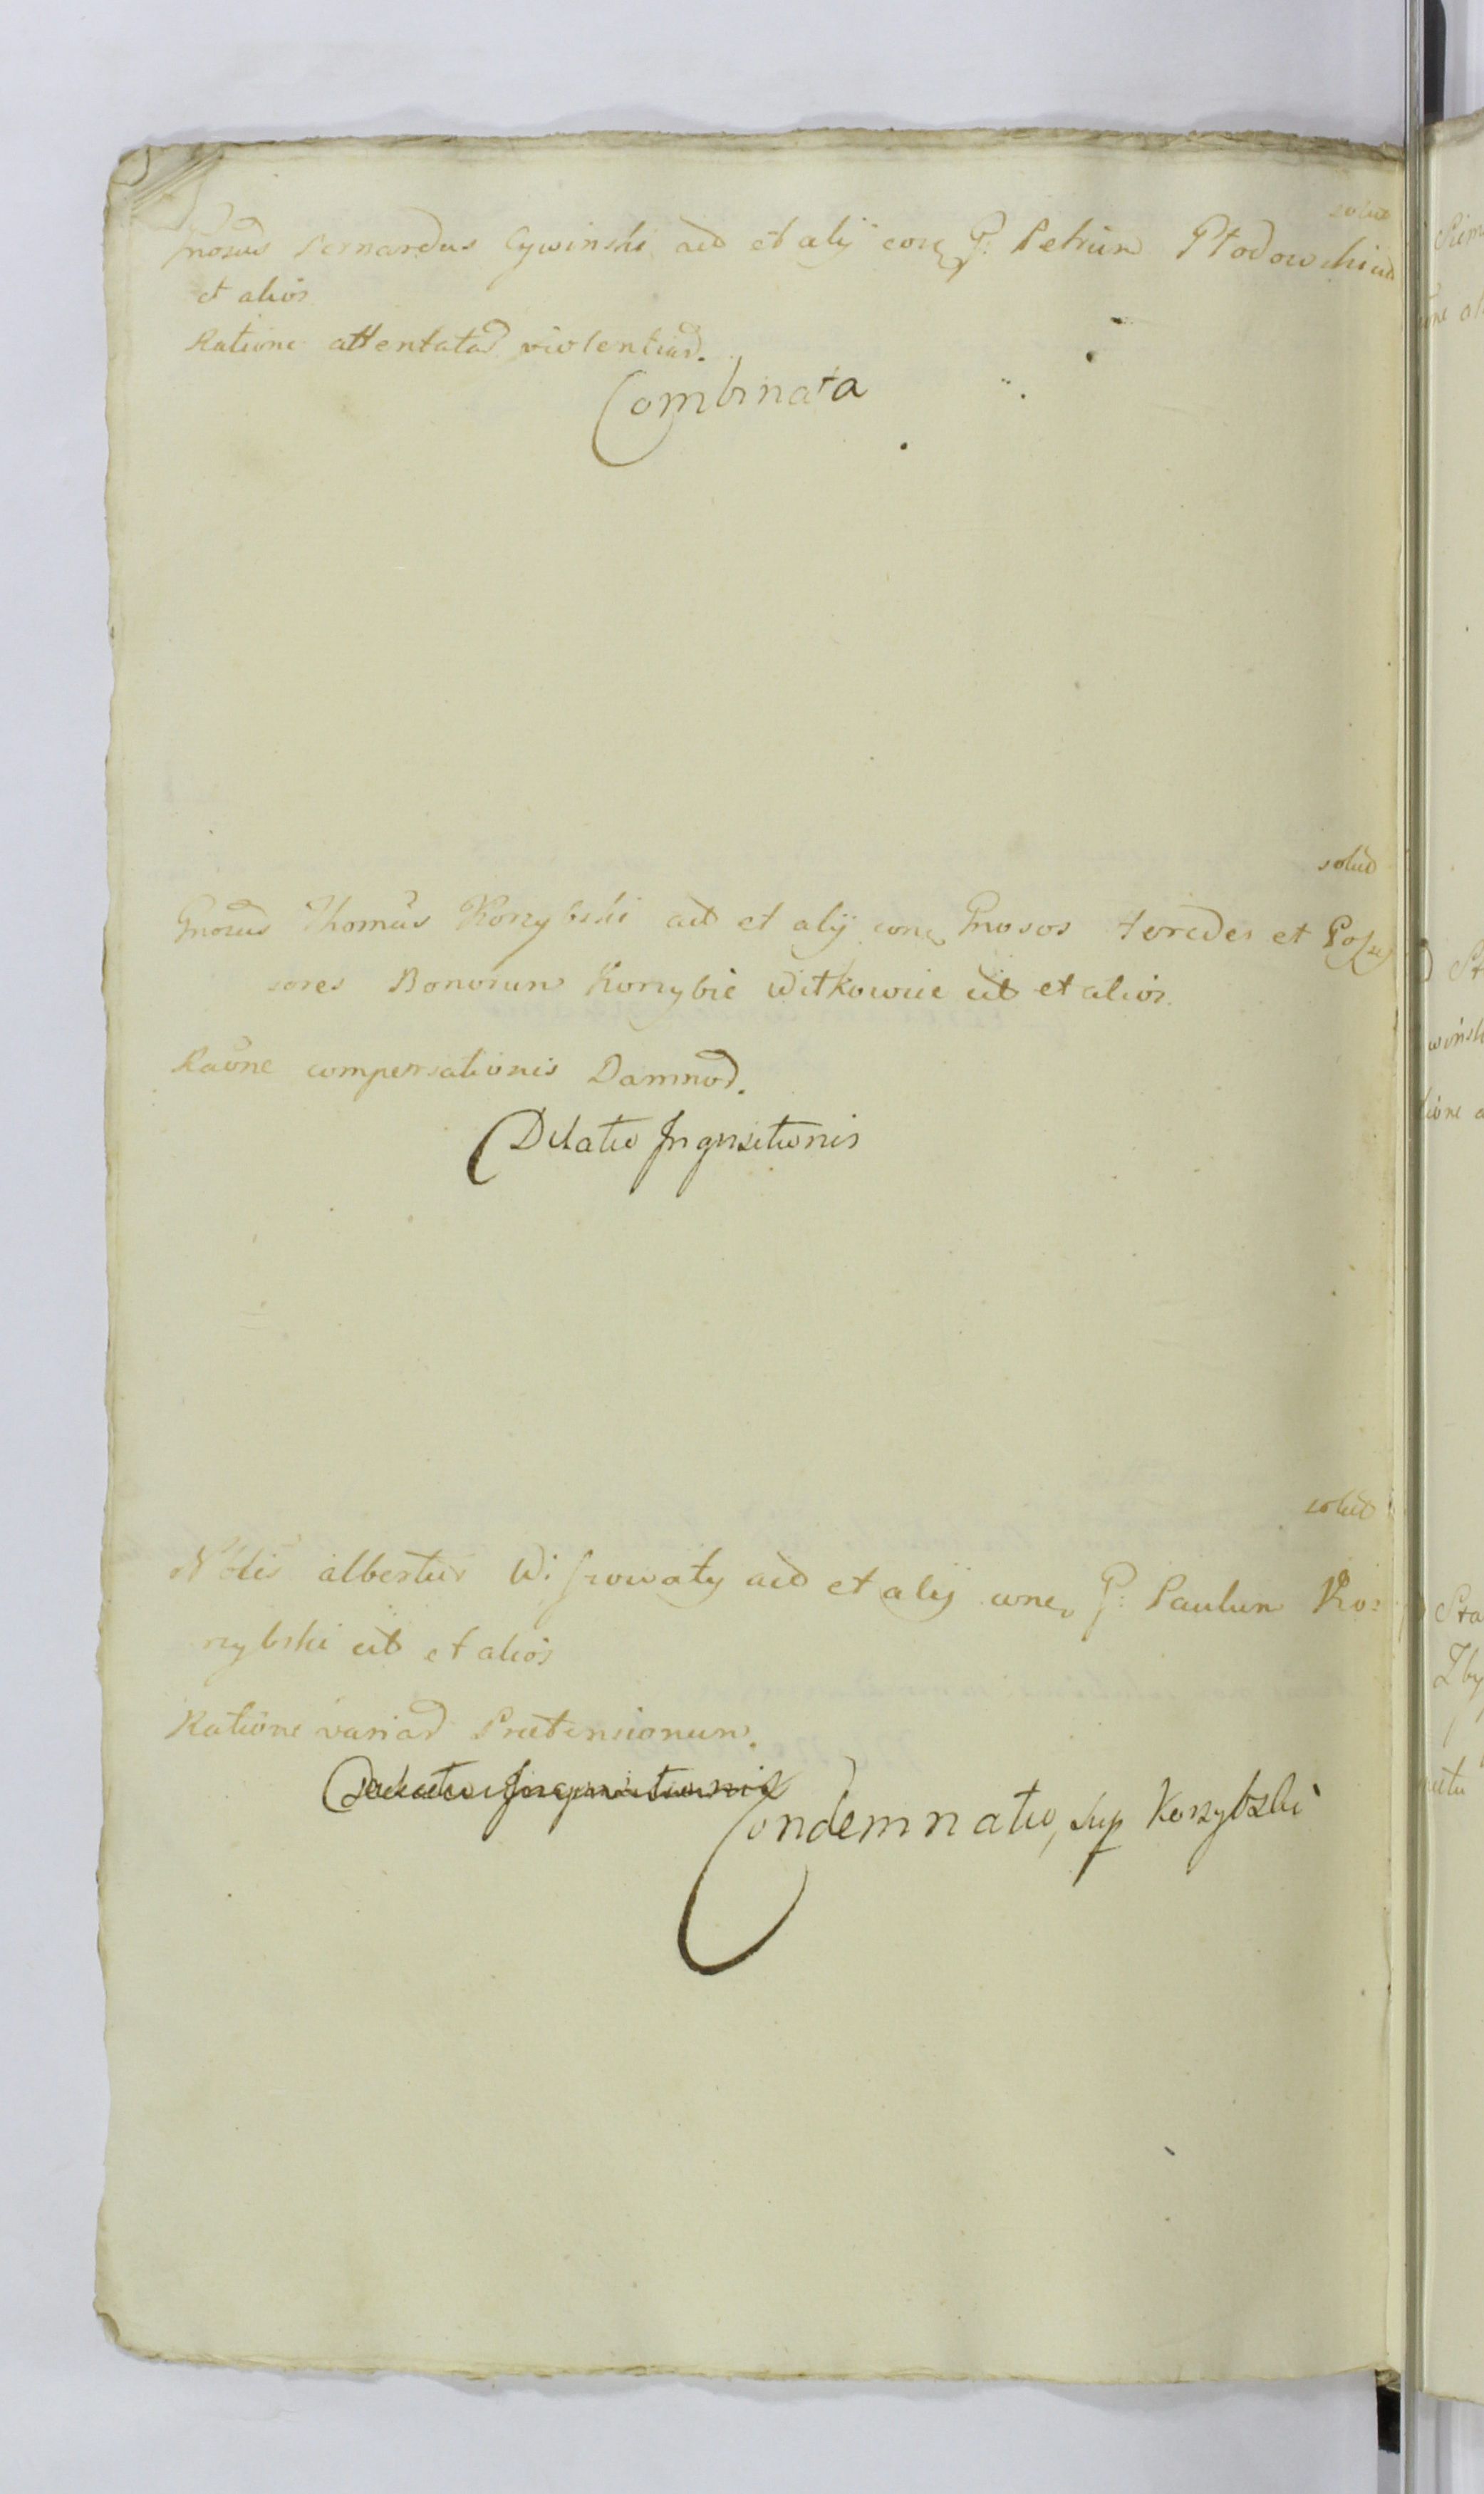 solud
Gnosus Bernardus Cywinski act et alij conq G: Petrum Płodowski cit
et alios
Ratione attentatar violentiar.
Combinata
solud
Gnosus Thomas Korzybski act et alij conq Gnosos Heredes et Posses
sores Bonorum Korzybie Witkowice cit et alios
Raōne compensationis Damnor.
Dilatio Inqusitionis
solud
Nblis albertus Wiszowaty act et alij conq G: Paulum Ko:
rzybski cit et alios
Ratione variar Praetensionum.
Dilatio Inquisitionis
Condemnatio, sup Korzybski